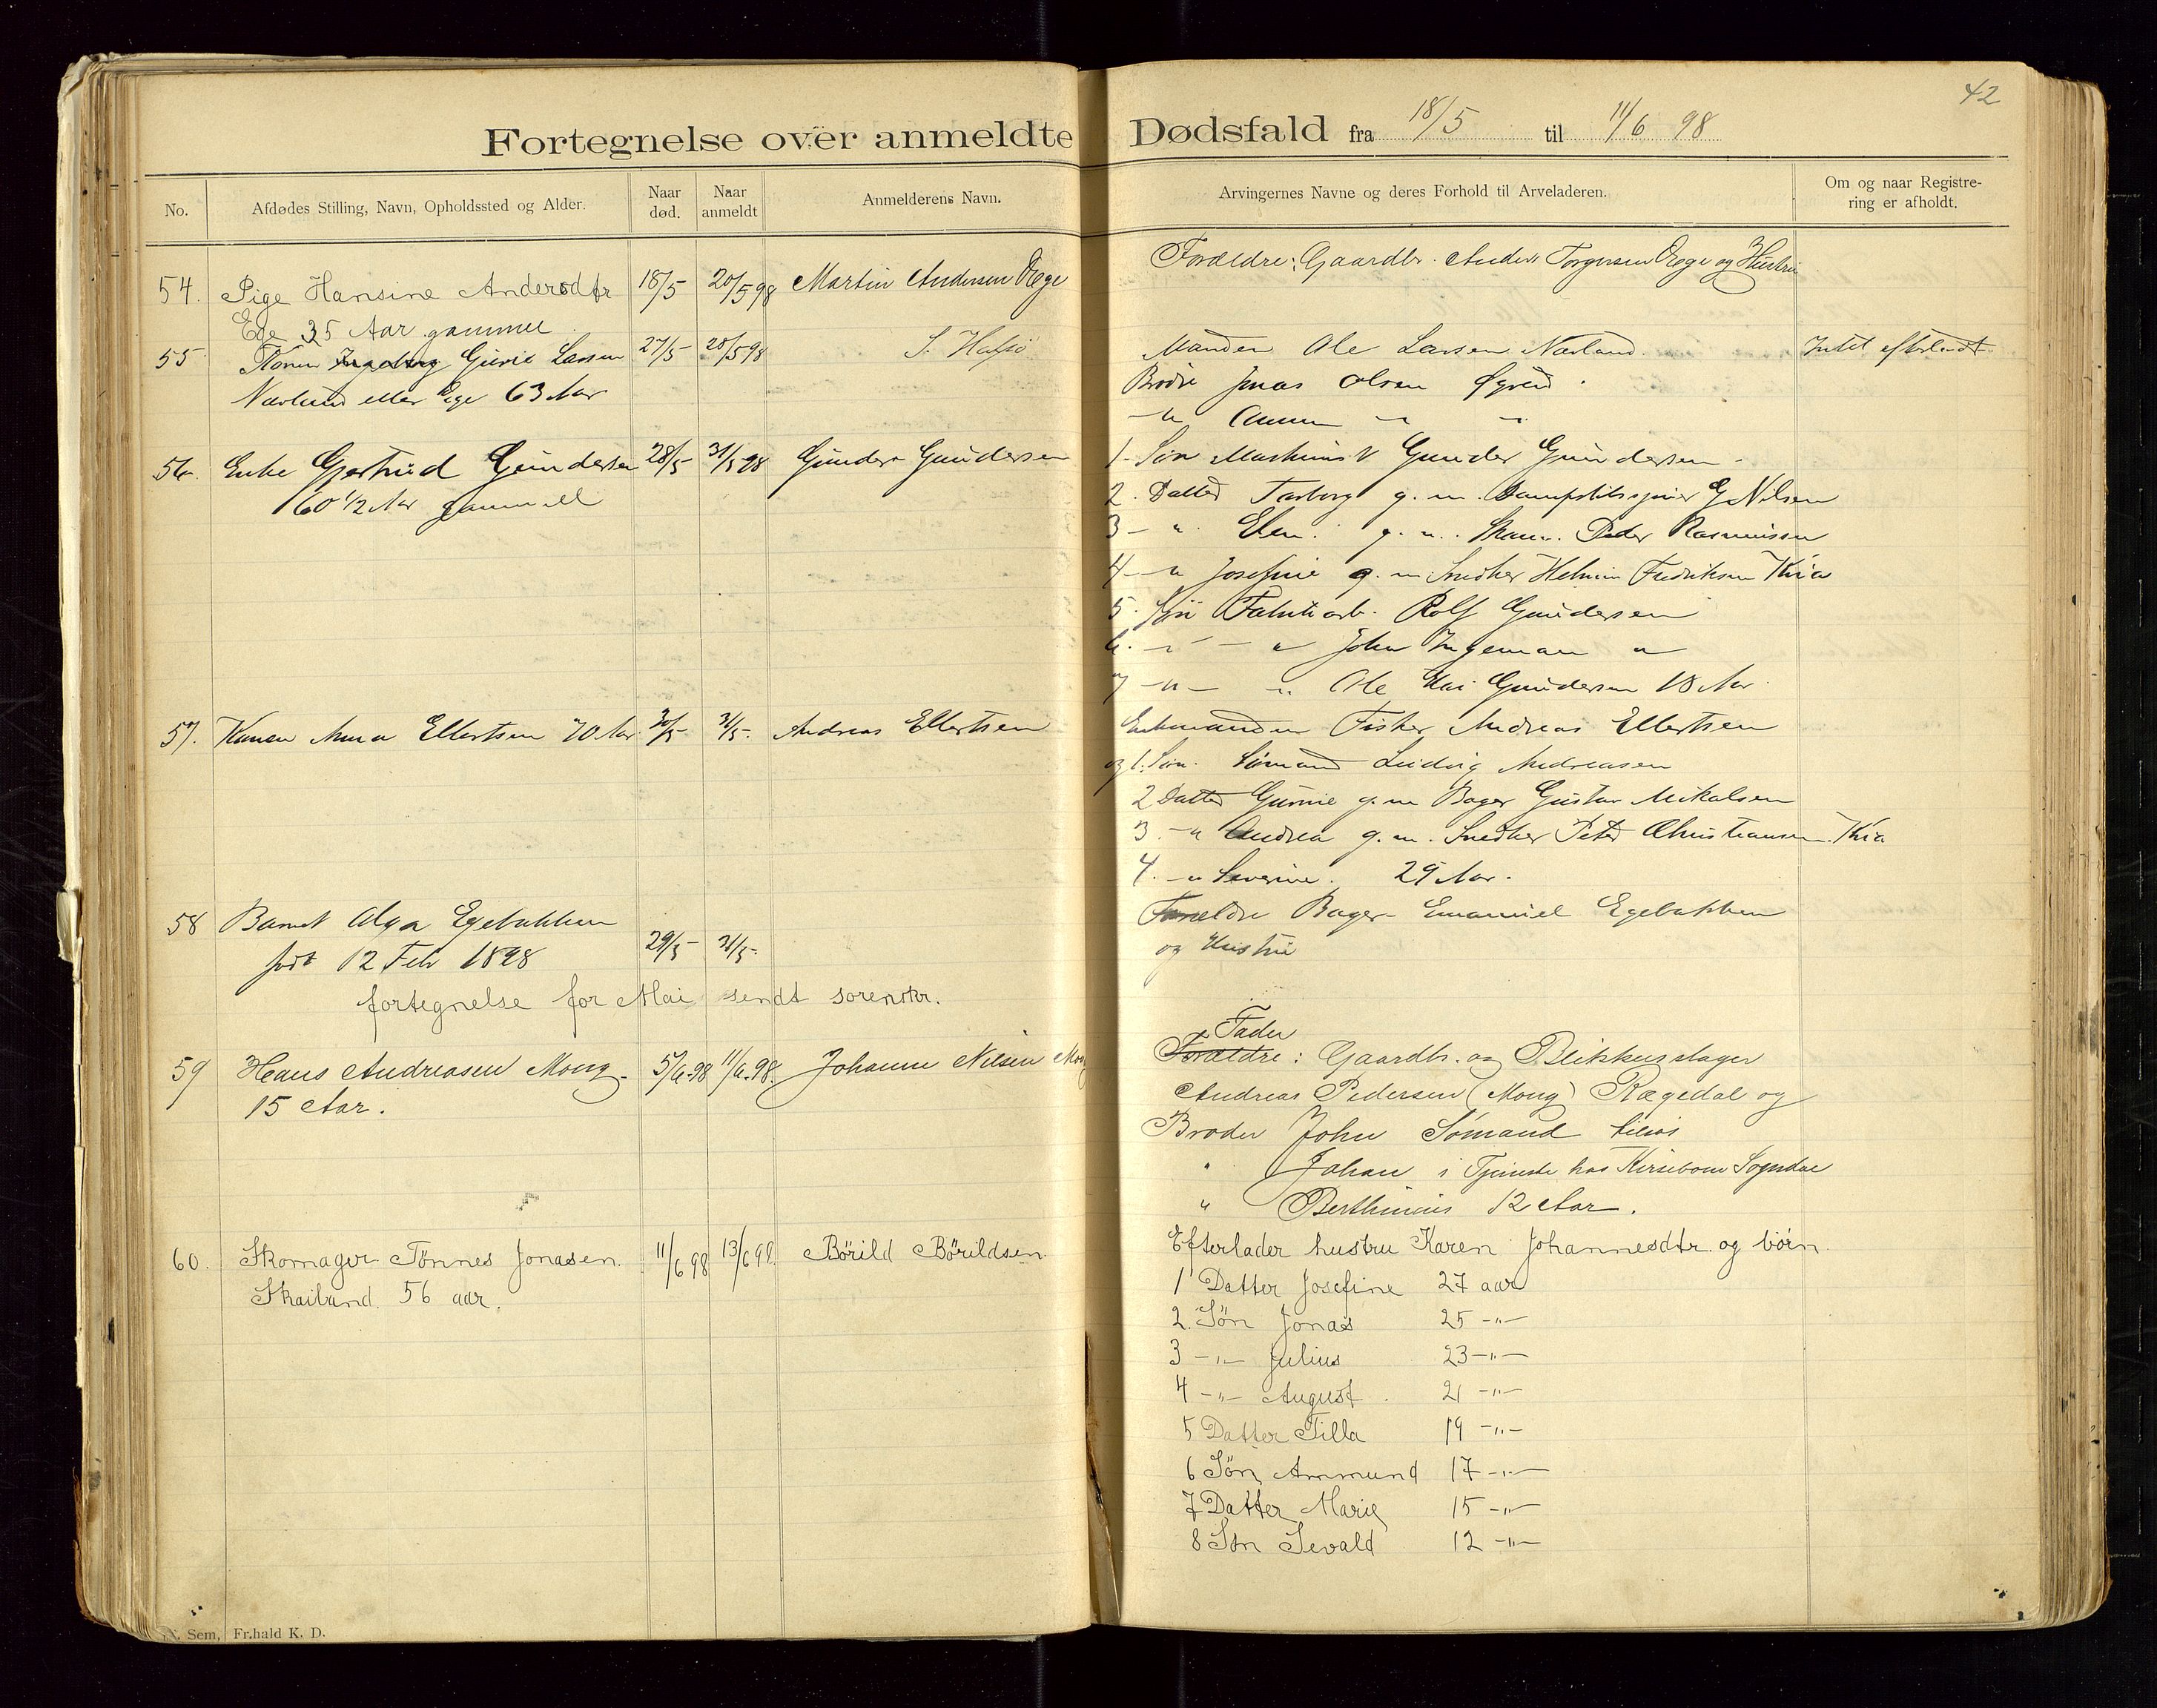 42
Fortegnelse over anmeldte Dødsfald fra 18/5 til 11/6 98
No.
Afdødes Stilling, Navn, Opholdssted og Alder.
Naar død.
Naar anmeldt
Anmelderens Navn.
Arvingernes Navne og deres Forhold til Arveladeren.
Om og naar Registrering er afholdt.
54. Pige Hansine Andersdtr 18/5 20/5 98 Martin Andersen Ege
Ege 35 Aar gammel
Forældre: Gaardbr. Anders Torgersen Ege og Hustru
55 Konen Ingeborg Gurie Larsen 27/5 28/5 98 S. Hafsö
Nærland eller Ege 63 Aar
Manden Ole Larsen Nærland. Intet efterladt
Broder Jonas Olsen
-"-
56. Enke Gjertrud Gundersen 28/5 31/5 98 Gunder Gundersen
60 1/2 Aar gammel
1- Søn Maskinist Gunder Gundersen -
2. Datter Torborg g. m. G Nilsen
3- " Elen. g. m. Peder Rasmussen
4- " Josefine g. m Snedker Helmin Fredriksen Kria
5. Søn Fabrikarb. Rolf Gundersen
6. - " - " John Ingeman "
7 -"- " Ole Gundersen 18 Aar.
57. Konen Anna Ellertsen 70 Aar 30/5 31/5. Andreas Ellertsen
Enkemanden Fisker Andreas Ellertsen
og 1. Søn. Sömand Ludvig Andreasen
2 Datter Gunie g. m Bager Gustav Mikalsen
3. -" Andrea g. m. Snedker Peter Christiansen. Kria
4. -" Severine. 29 Aar.
58 Barnet Olga Egebakken
født 12 Feb 1898 29/5 31/5-
Forældre Bager Emanuel Egebakken
og Hustru
fortegnelse for Mai sendt sorenskr.
59 Hans Andreasen Mong. 5/6-98 11/6-98. Johanne Nilsen Mong
15 Aar.
Fader
Forældre: Gaardbr. og Blikkenslager
Andreas Pedersen (Mong) Rægedal og
Broder John Sømand tilsøs
" Johan i Tjeneste hos Kirsebom Sogndal
" Berthinius 12 Aar.
60. Skomager Tönnes Jonasen. 11/6 98 13/6 98 Börild Börildsen
Skailand. 56 aar.
Efterlader hustru Karen Johannesdtr. og børn.
1 Datter Josefine 27 aar
2. Søn Jonas 25 -"-
3 -"- Julius 23 -"-
4 -"- August. 21 -"-
5 Datter Tilla 19 -"-
6 Søn Ammund 17 -"-
7 Datter Marie 15 -"-
8 Søn Sevald 12 -"-
N. Sem, Fr.hald K. D.